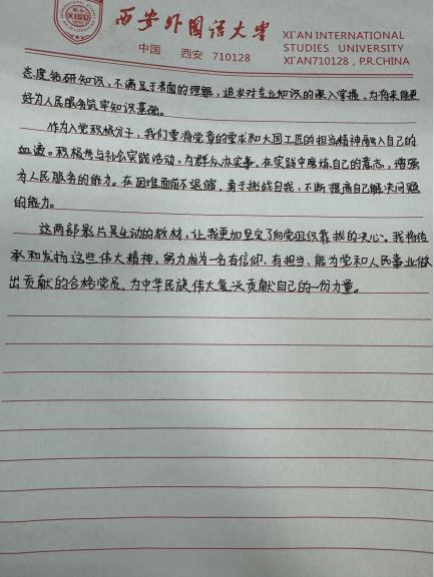 西安外国语大学
XI'AN INTERNATIONAL
STUDIES UNIVERSITY
中国 西安 710128
XI'AN710128, P.R.CHINA
XISU
态度钻研知识,不满足于表面的理解,追求对专业知识的深入掌握,为将来能更
好为人民服务筑牢知识基础。
作为入党积极分子,我们要将党章的要求和大国工匠的担当精神融入自己的
血液。积极参与社会实践活动,为群众办实事,在实践中磨炼自己的意志,增强
为人民服务的能力。在困难面前不退缩,勇于挑战自我,不断提高自己解决问题
的能力。
这两部影片是生动的教材,让我更加坚定了向党组织靠拢的决心。我将传
承和发扬这些伟大精神,努力成为一名有信仰、有担当、能为党和人民事业做
出贡献的合格党员,为中华民族伟大复兴贡献自己的一份力量。